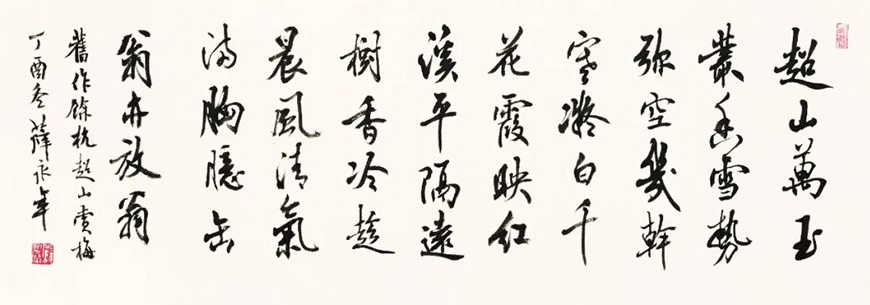 超山萬玉
叢香雪勢
彌空幾幹
寒凝白千
花霞映紅
溪平隔遠
樹香冷趁
晨風清氣
滿胸臆缶
翁亦放翁
舊作餘杭超山賞梅
丁酉冬薛永年